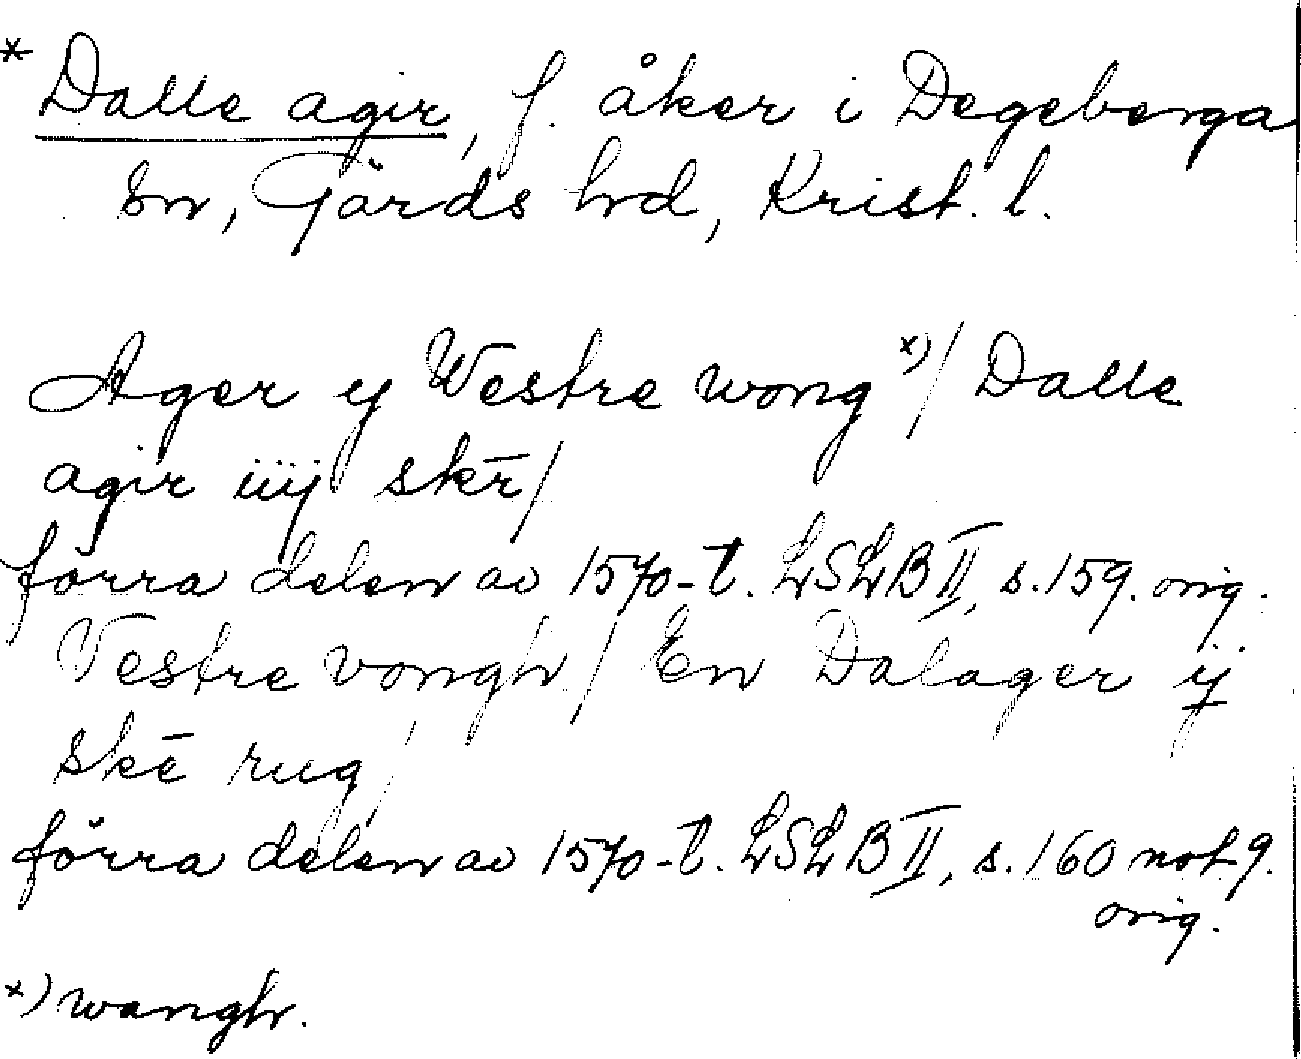 * Dalle agir, f. åker i Degeberga
sn, Gärds hd, Krist. l.
Ager y Westre wong x)/ Dalle
agir iiij skr̄/
förra delen av 1570-t. LSLB II, s. 159. orig.
Vestre vongh/ En Dalager ij
skē rug/
förra delen av 1570-t. LSLB II, s. 160 not 9.
orig.
x) wangh.